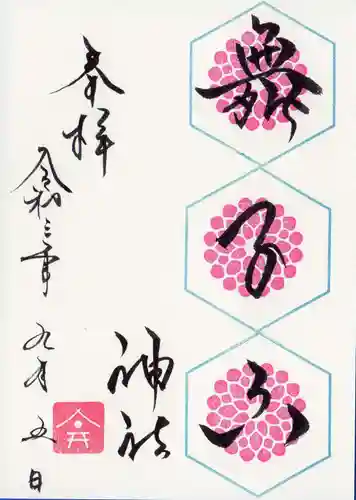 舞子六
神社
奉拝
令和三年 九月 五日